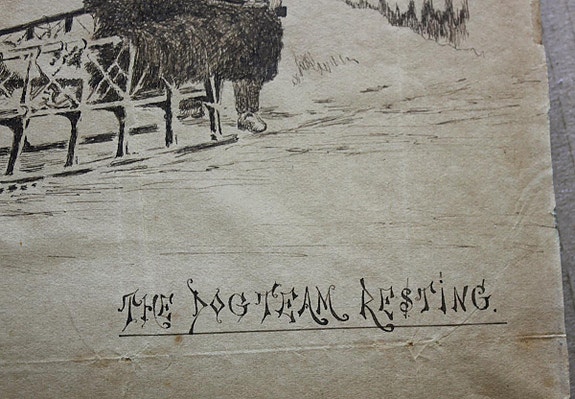 THE DOG TEAM RESTING.